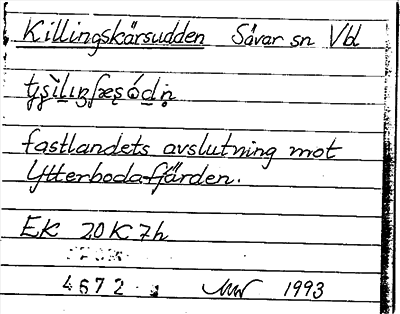 Killingskärsudden Sävar sn Vbl
fastlandets avslutning mot
Ytterbodafjärden.
EK 20K7h
4672 1993